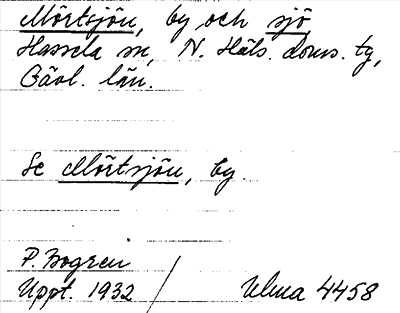 Mörtsjön, by och sjö
Hassela sn, N. Häls. doms. tg,
Gävl. län.
Se Mörtsjön, by.
P. Bogren
Uppt. 1932 / Ulma 4458